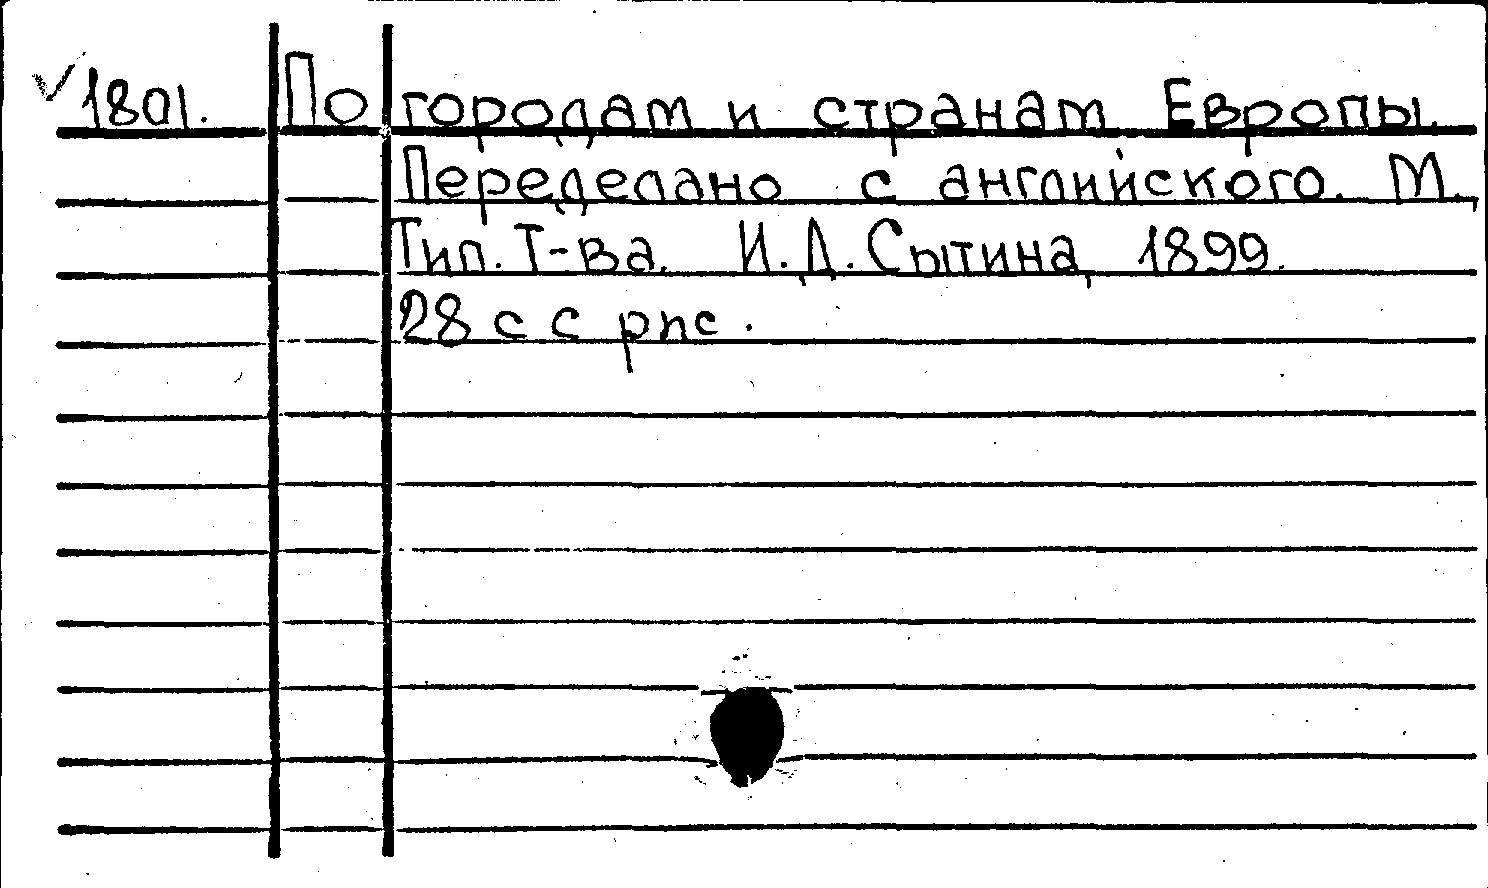 1801. По городам и странам Европы.
Переделано с английского. М.,
Тип. Т-ва. И. Д. Сытина, 1899.
28 с с рис.